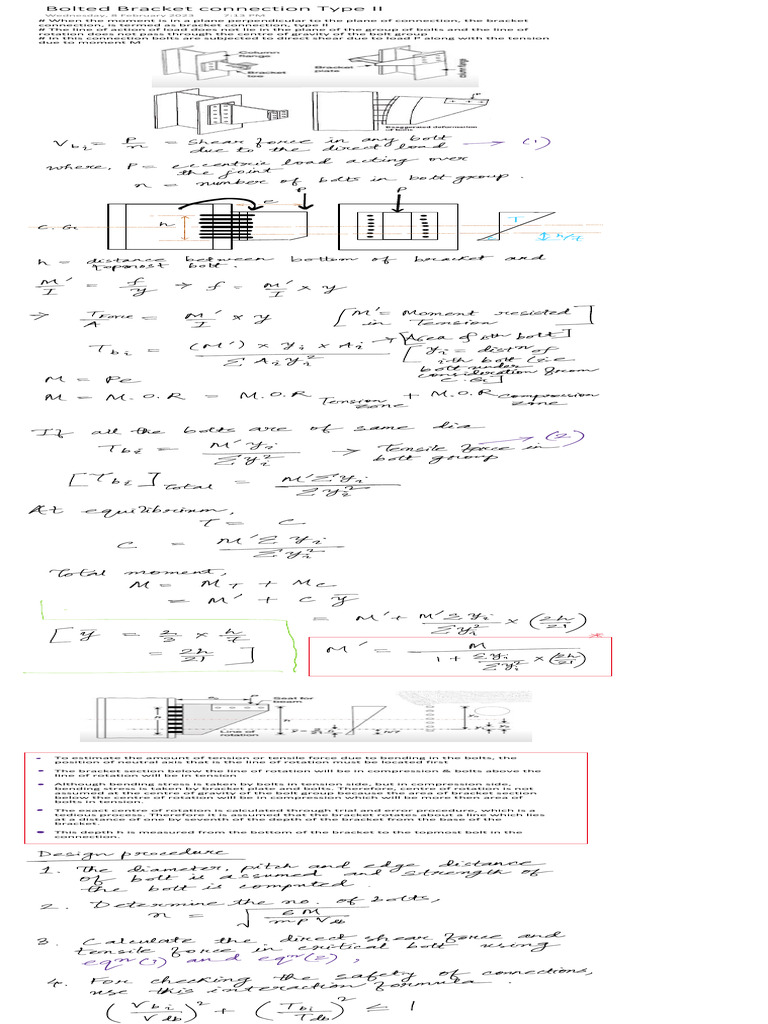 Bolted Bracket connection Type II
Wednesday, 8 February 2023 7:13 PM
# When the moment is in a plane perpendicular to the plane of connection, the bracket
connection, is termed as bracket connection, type II
# The line of action of load does not lie in the plane of the group of bolts and the line of
rotation does not pass through the centre of gravity of the bolt group
# In this connection bolts are subjected to direct shear due to load P along with the tension
due to moment M
Column
flange
Bracket
tee
Bracket
plate
Column flange
Exaggerated deformation
of bolts
V_bi = P/n = Shear force in any bolt
due to the direct load → (1)
where, P = eccentric load acting over
the joint
n = number of bolts in bolt group.
P
e
P
h
T
h/7
C. G.
h = distance between bottom of bracket and
topmost bolt.
M'/I = f/y ⇒ f = M'/I × y
⇒ T_Force/A = M'/I × y [M' = Moment resisted
in Tension]
T_bi = (M') × y_i × A_i / Σ A_i y_i² → [Area of ith bolt]
[y_i = distⁿ of
ith bolt (i.e
bolt under
consideration from
C. G.]
M = Pe
M = M.O.R = M.O.R Tension zone + M.O.R compression zone
If all the bolts are of same dia
T_bi = M' y_i / Σ y_i² → Tensile force in
bolt group → (2)
[T_bi] Total = M' Σ y_i / Σ y_i²
At equilibrium,
T = C
C = M' Σ y_i / Σ y_i²
Total moment,
M = M_T + M_C
= M' + C ȳ
= M' + M' Σ y_i / Σ y_i² × (2h/21)
[ȳ = 2/3 × h/7
= 2h/21]
M' = M / 1 + Σ y_i / Σ y_i² × (2h/21)
P
Seat for
beam
h
Line of
rotation
h
h/7
• To estimate the amount of tension or tensile force due to bending in the bolts, the
position of neutral axis that is the line of rotation must be located first
• The bracket section below the line of rotation will be in compression & bolts above the
line of rotation will be in tension
• Although bending stress is taken by bolts in tension side, but in compression side,
bending stress is taken by bracket plate and bolts. Therefore, centre of rotation is not
assumed at the centre of gravity of the bolt group because the area of bracket section
below the centre of rotation will be in compression which will be more then area of
bolts in tension.
• The exact centre of rotation is calculated through trial and error procedure, which is a
tedious process. Therefore it is assumed that the bracket rotates about a line which lies
at a distance of one by seventh of the depth of the bracket from the base of the
bracket.
• This depth h is measured from the bottom of the bracket to the topmost bolt in the
connection.
Design procedure
1. The diameter, pitch and edge distance
of bolt is assumed and strength of
the bolt is computed.
2. Determine the no. of bolts,
n = √(6M / m p V_db)
3. Calculate the direct shear force and
tensile force in critical bolt using
eqⁿ(1) and eqⁿ(2),
4. For checking the safety of connections,
use this interaction formula.
(V_bi / V_db)² + (T_bi / T_db)² ≤ 1